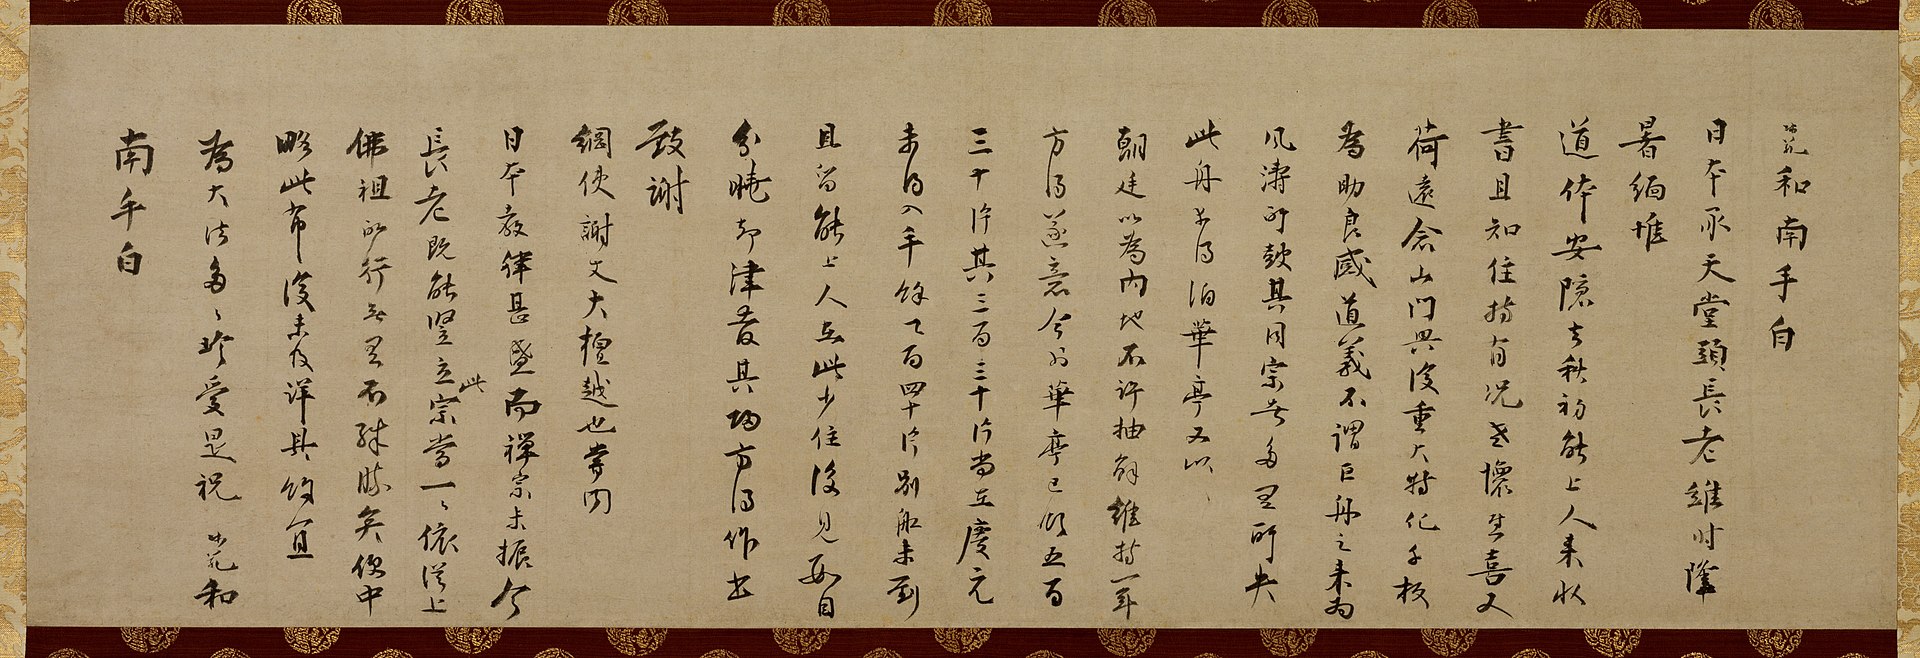 師範和南手白
日本承天堂頭長老維時隆
暑緬惟
道体安隠去秋初能上人来收
書且知住持有况老懷甚喜又
荷遠念山門興復重大特化千板
為助良感道義不謂巨舟之来為
風濤所皷其同宗者多至所失
此舟幸得泊華亭又以
朝廷以為内地不許抽解維持一年
方得遂意今到華亭已領五百
三十片其三百三十片尚在慶元
未得入手餘乃百四十片別船未到
且留能上人在此少住後見數目
分曉却津發其歸方得作書
致謝
綱使謝丈大檀越也嘗聞
日本教律甚盛而禅宗未振今
長老既能竪立此宗當一々依従上
佛祖所行無有不殊勝矣便中
略此布復未及詳具餘宜
為大法多々珍愛是祝 師範和
南手白